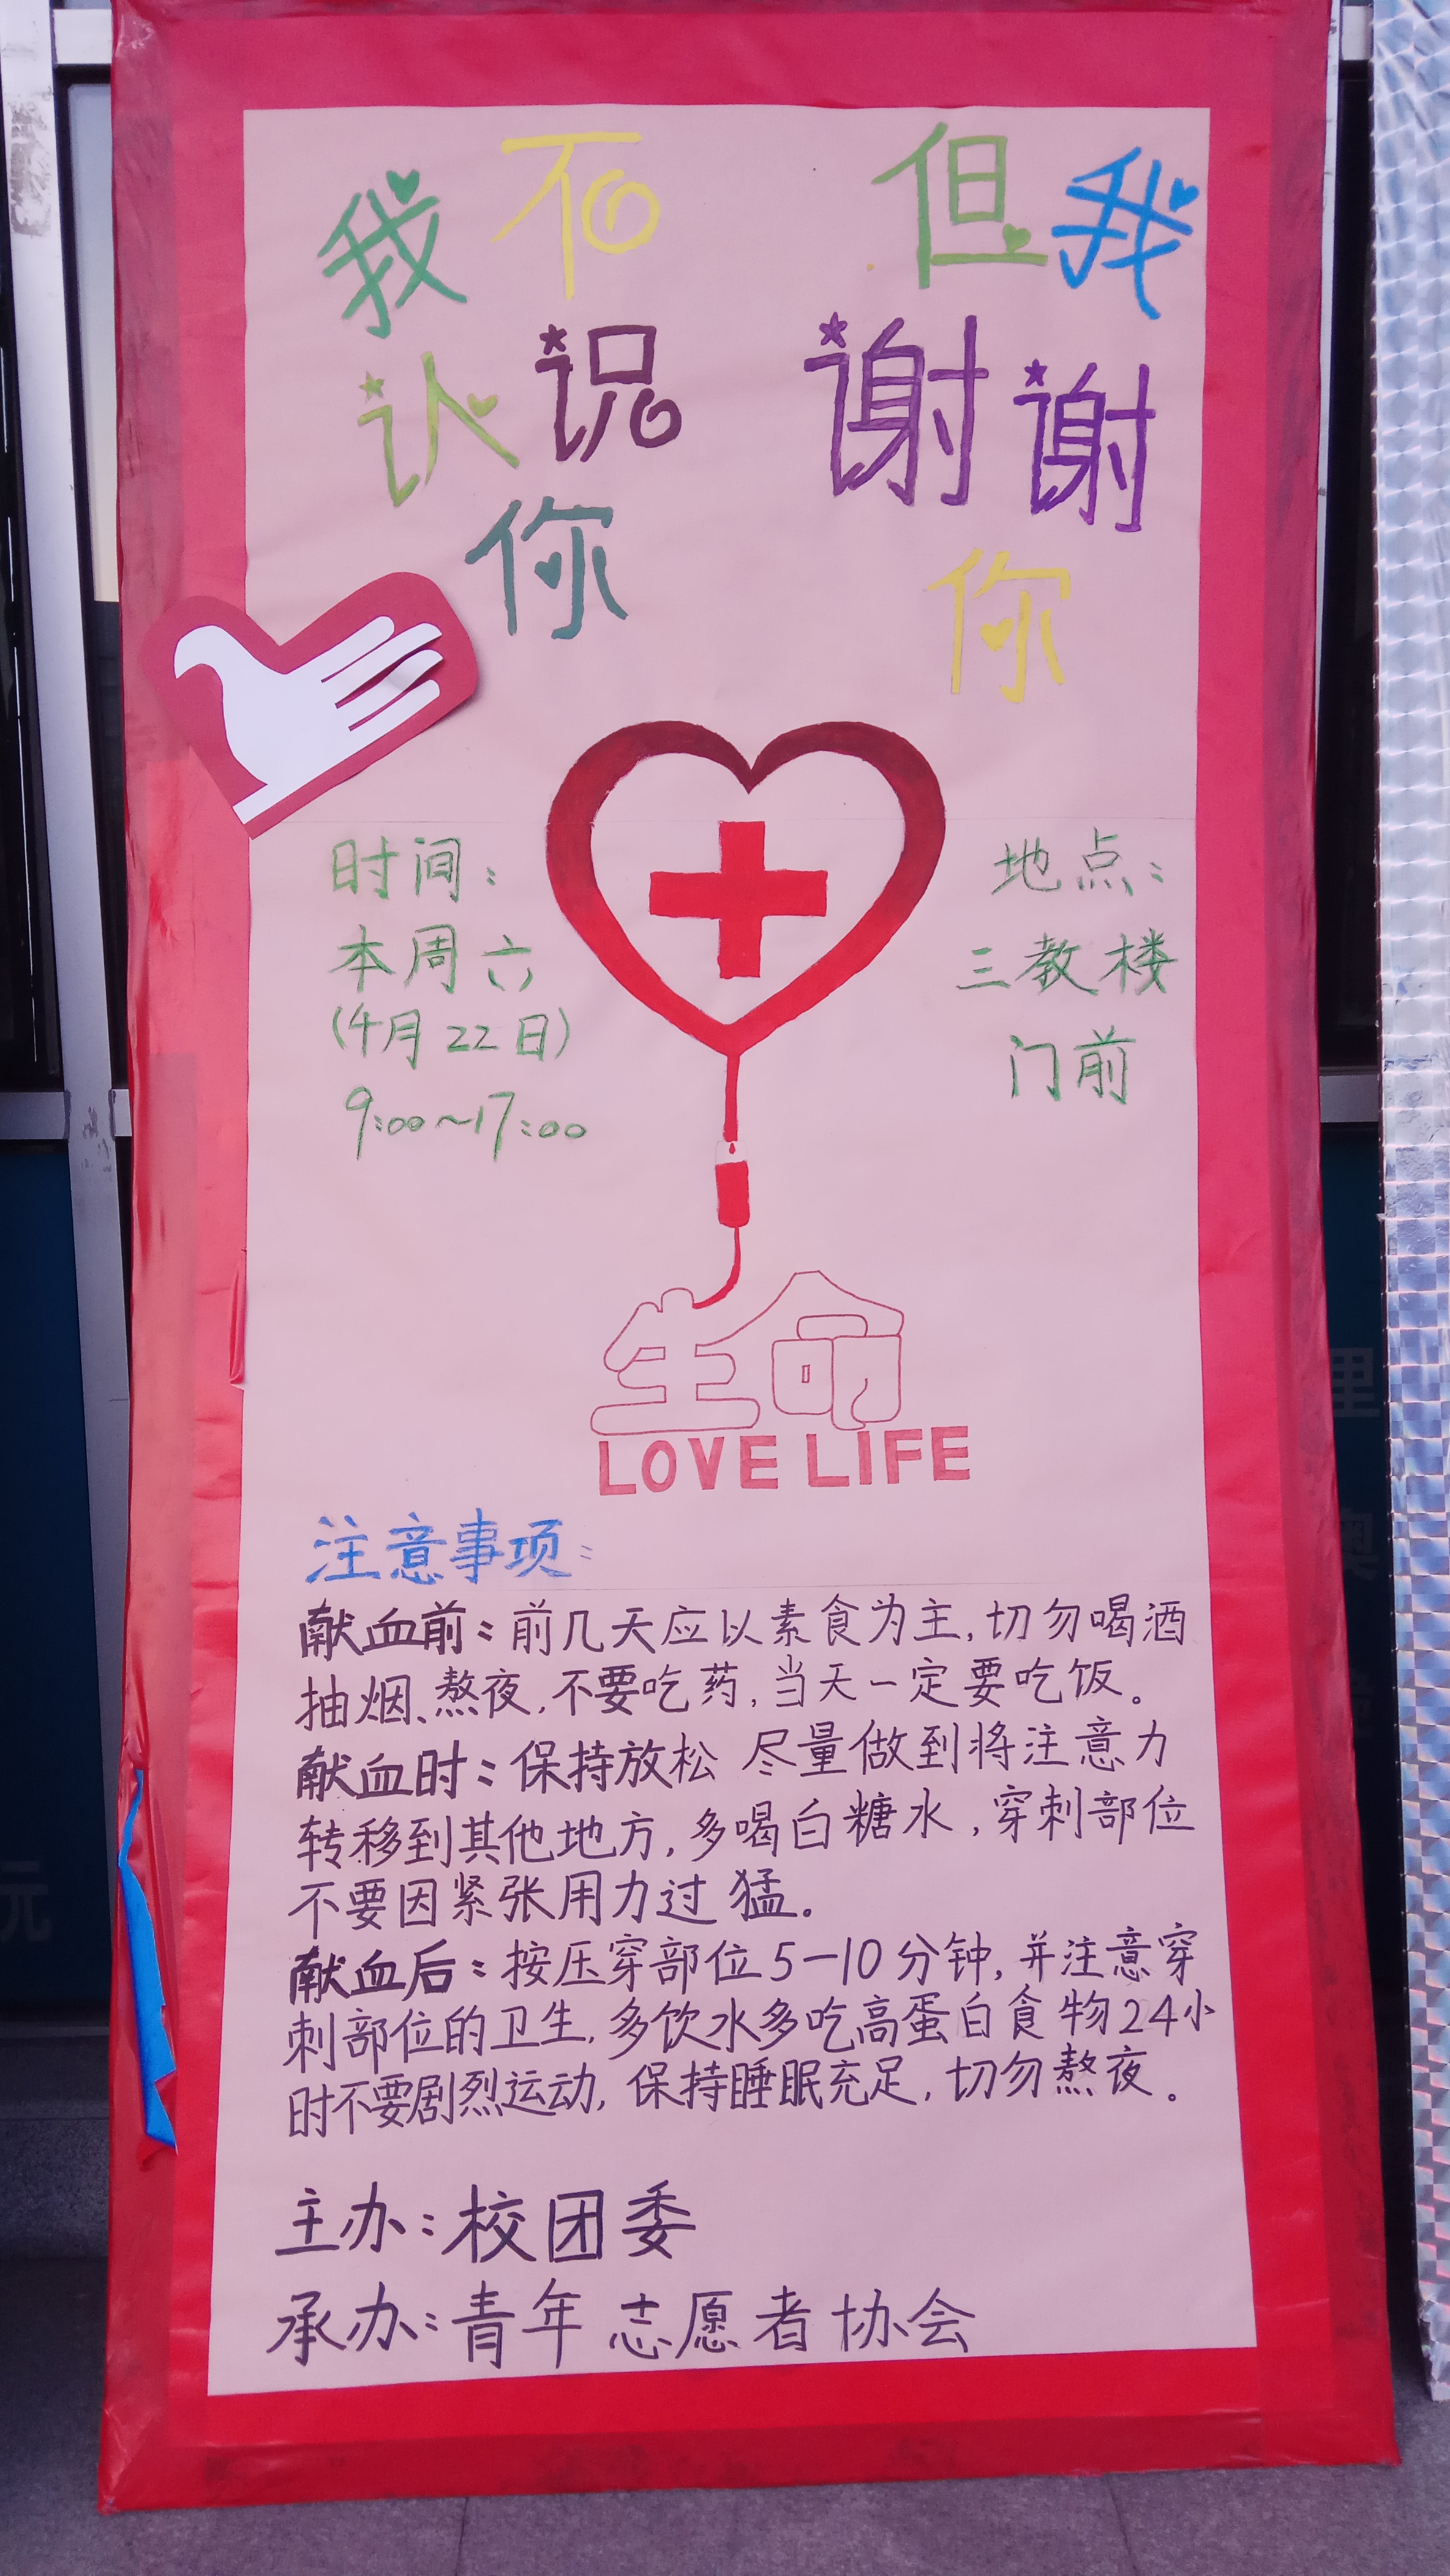 我不
认识
你
但我
谢谢
你
时间：
本周六
(4月22日)
9:00~17:00
地点：
三教楼
门前
生命
LOVE LIFE
注意事项：
献血前：前几天应以素食为主,切勿喝酒
抽烟、熬夜,不要吃药,当天一定要吃饭。
献血时：保持放松 尽量做到将注意力
转移到其他地方,多喝白糖水,穿刺部位
不要因紧张用力过猛。
献血后：按压穿部位5—10分钟,并注意穿
刺部位的卫生,多饮水多吃高蛋白食物24小
时不要剧烈运动,保持睡眠充足,切勿熬夜。
主办：校团委
承办：青年志愿者协会